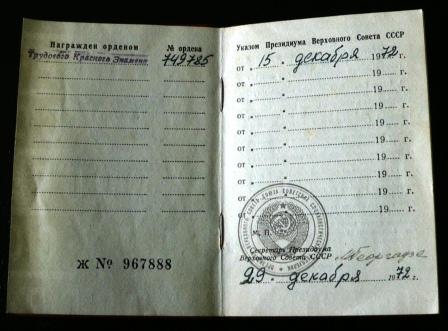 Награжден орденом № ордена
Трудового Красного Знамени 749785
Ж № 967888
Указом Президиума Верховного Совета СССР
от „ 15 „ декабря 1972 г.
от „ „ 19 г.
от „ „ 19 г.
от „ „ 19 г.
от „ „ 19 г.
от „ „ 19 г.
от „ „ 19 г.
от „ „ 19 г.
от „ „ 19 г.
М. П.
Секретарь Президиума
Верховного Совета СССР М Георгадзе
„ 29 „ декабря 1972 г.